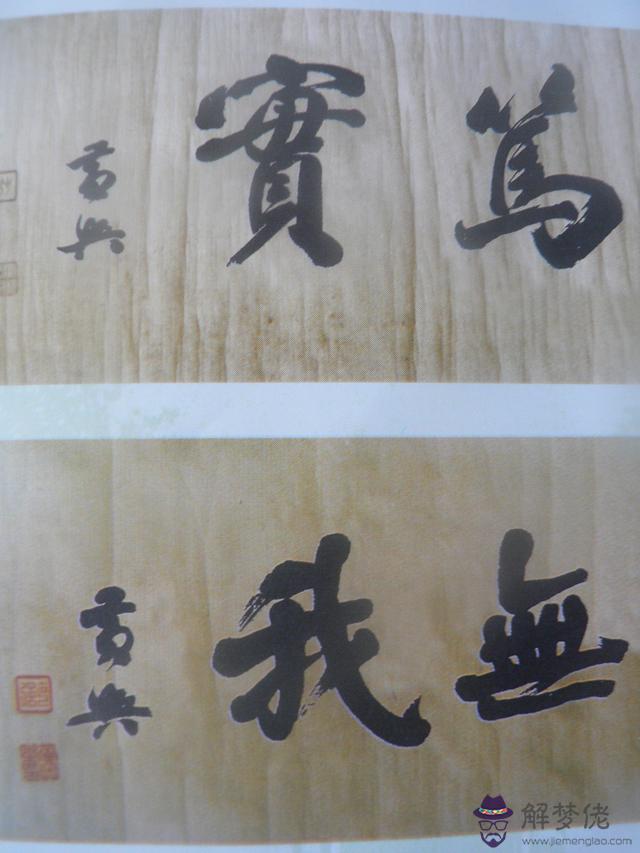 篤實
黃興
無我
黃興
解梦佬
www.jiemenglao.com